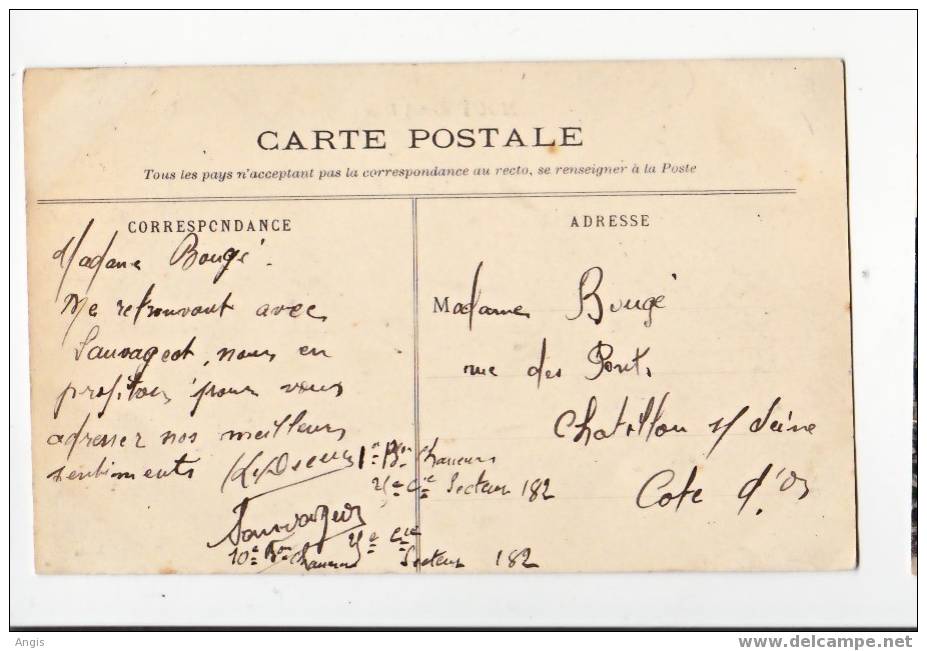 CARTE POSTALE
Tous les pays n'acceptant pas la correspondance au recto, se renseigner à la Poste
CORRESPONDANCE
Madame Bougé
Me retrouvant avec
Sauvageot, nous en
profitons pour vous
adresser nos meilleurs
sentiments
1er Bon Chasseurs
Cie Secteur 182
Sauvageot
10e Bon Chasseurs Cie
Secteur 182
ADRESSE
Madame Bougé
rue des Ponts
Chatillon s/ Seine
Cote d'Or
Angis
www.delcampe.net